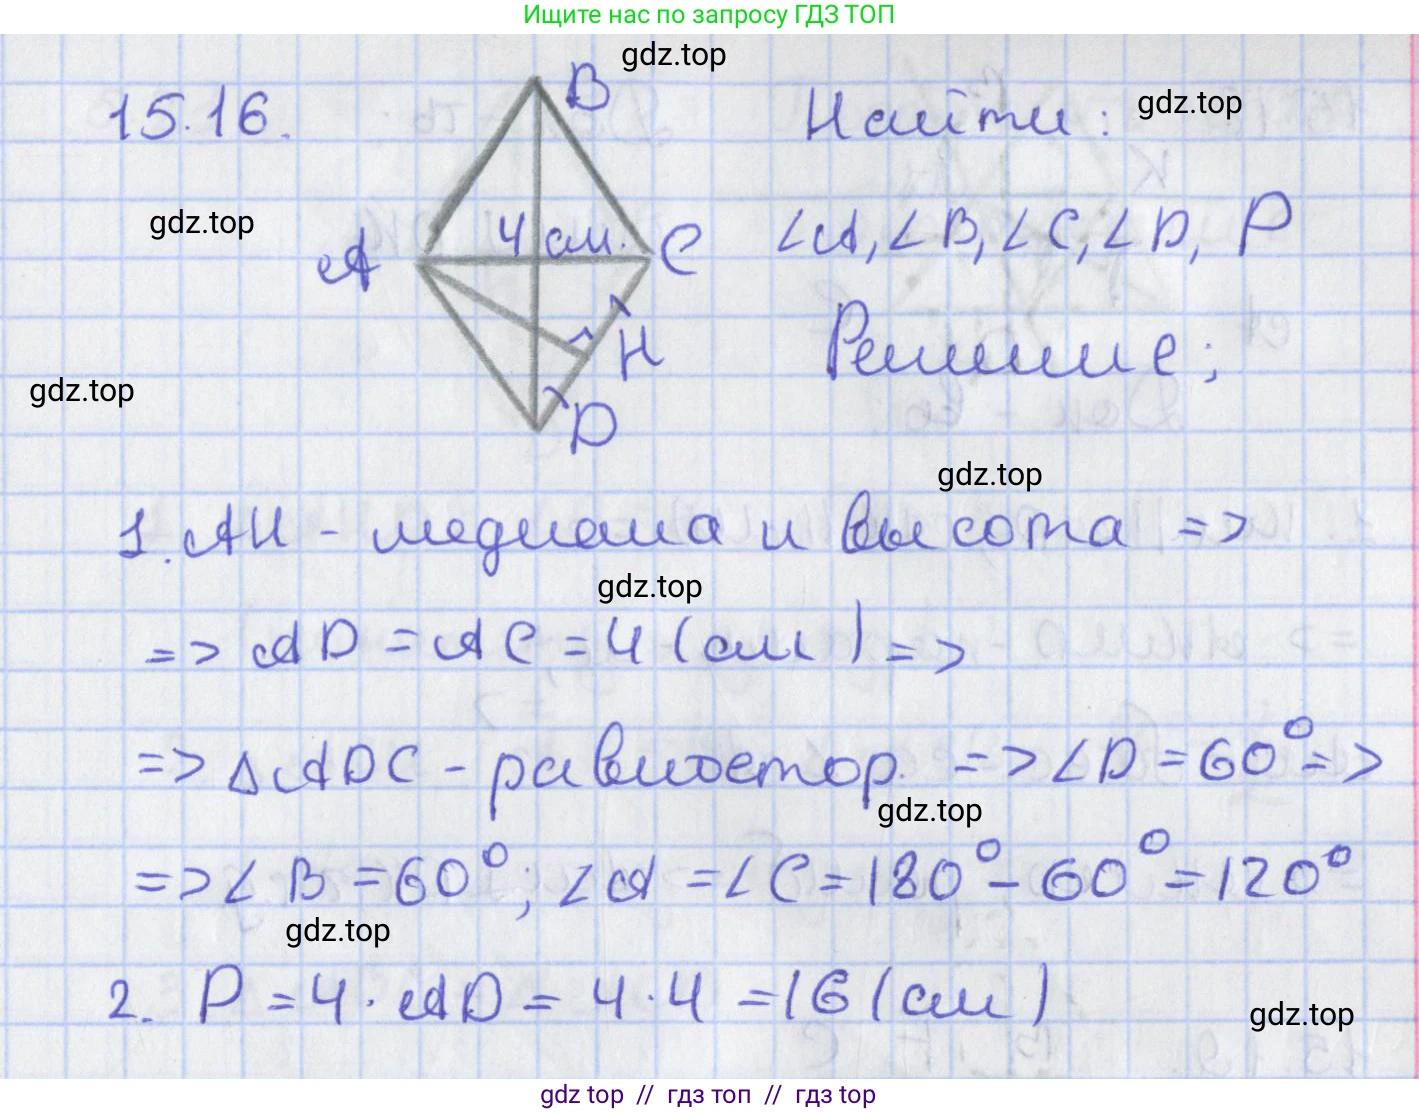 Ищите нас по запросу ГДЗ ТОП
gdz.top
15.16.
B
Найти:
gdz.top
gdz.top
4 см.
A
C
∠A, ∠B, ∠C, ∠D, P
H
Решение;
gdz.top
D
gdz.top
1. AH - медиана и высота =>
gdz.top
=> AD = AC = 4 (см) =>
=> △ADC - равностор. => ∠D = 60° =>
gdz.top
=> ∠B = 60°; ∠A = ∠C = 180° - 60° = 120°
gdz.top
2. P = 4 · AD = 4 · 4 = 16 (см)
gdz.top
gdz top // гдз топ // гдз top